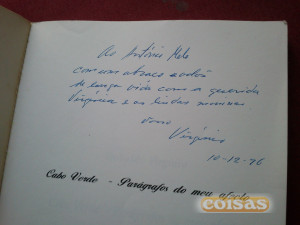 Ao António Melo
com um abraço e votos
de longa vida com a querida
Virgínia e as lindas meninas
do
Virgínio
10-12-76
Cabo Verde - Parágrafos do meu afecto
coisas